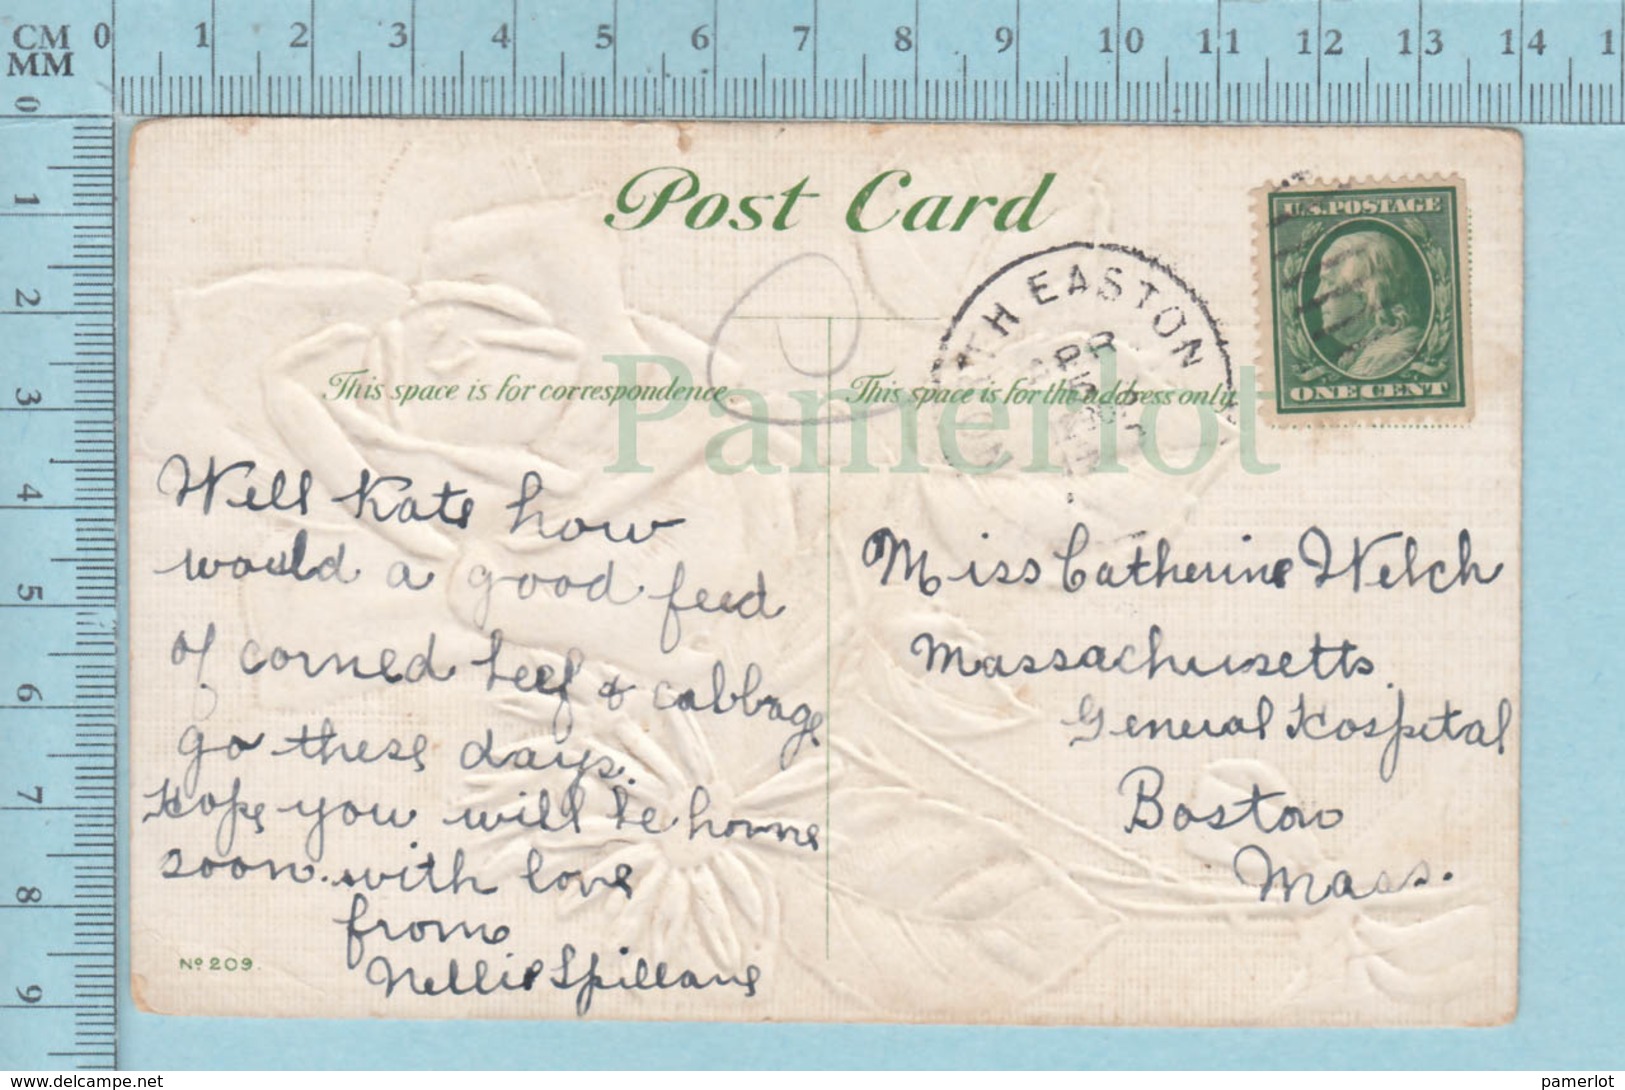 CM 0 1 2 3 4 5 6 7 8 9 10 11 12 13 14 1
MM
0
1
2
3
4
5
6
7
8
9
Post Card
U.S. POSTAGE
ONE CENT
EASTON
APR
This space is for correspondence
This space is for the address only
Pamerlot
Well Kate how
would a good feed
of corned beef & cabbage
go these days.
Hope you will be home
soon. with love
from
Nellie Spillane
Miss Catherine Welch
Massachusetts
General Hospital
Boston
Mass.
No 209.
www.delcampe.net
pamerlot